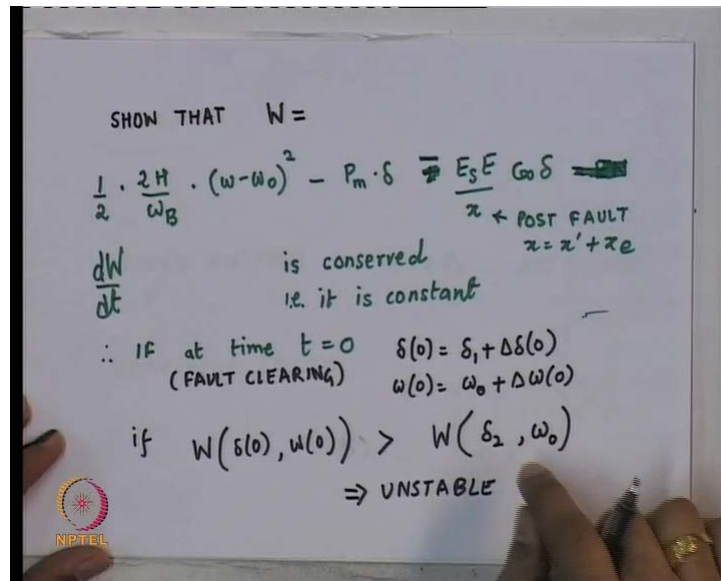 SHOW THAT W =
1/2 · 2H/ω_B · (ω-ω₀)² - P_m · δ - E_S E/x Cos δ
x ← POST FAULT
x = x' + x_e
dW/dt is conserved
i.e. it is constant
∴ IF at time t = 0 δ(0) = δ₁ + Δδ(0)
(FAULT CLEARING) ω(0) = ω₀ + Δω(0)
if W(δ(0), ω(0)) > W(δ₂, ω₀)
⇒ UNSTABLE
NPTEL